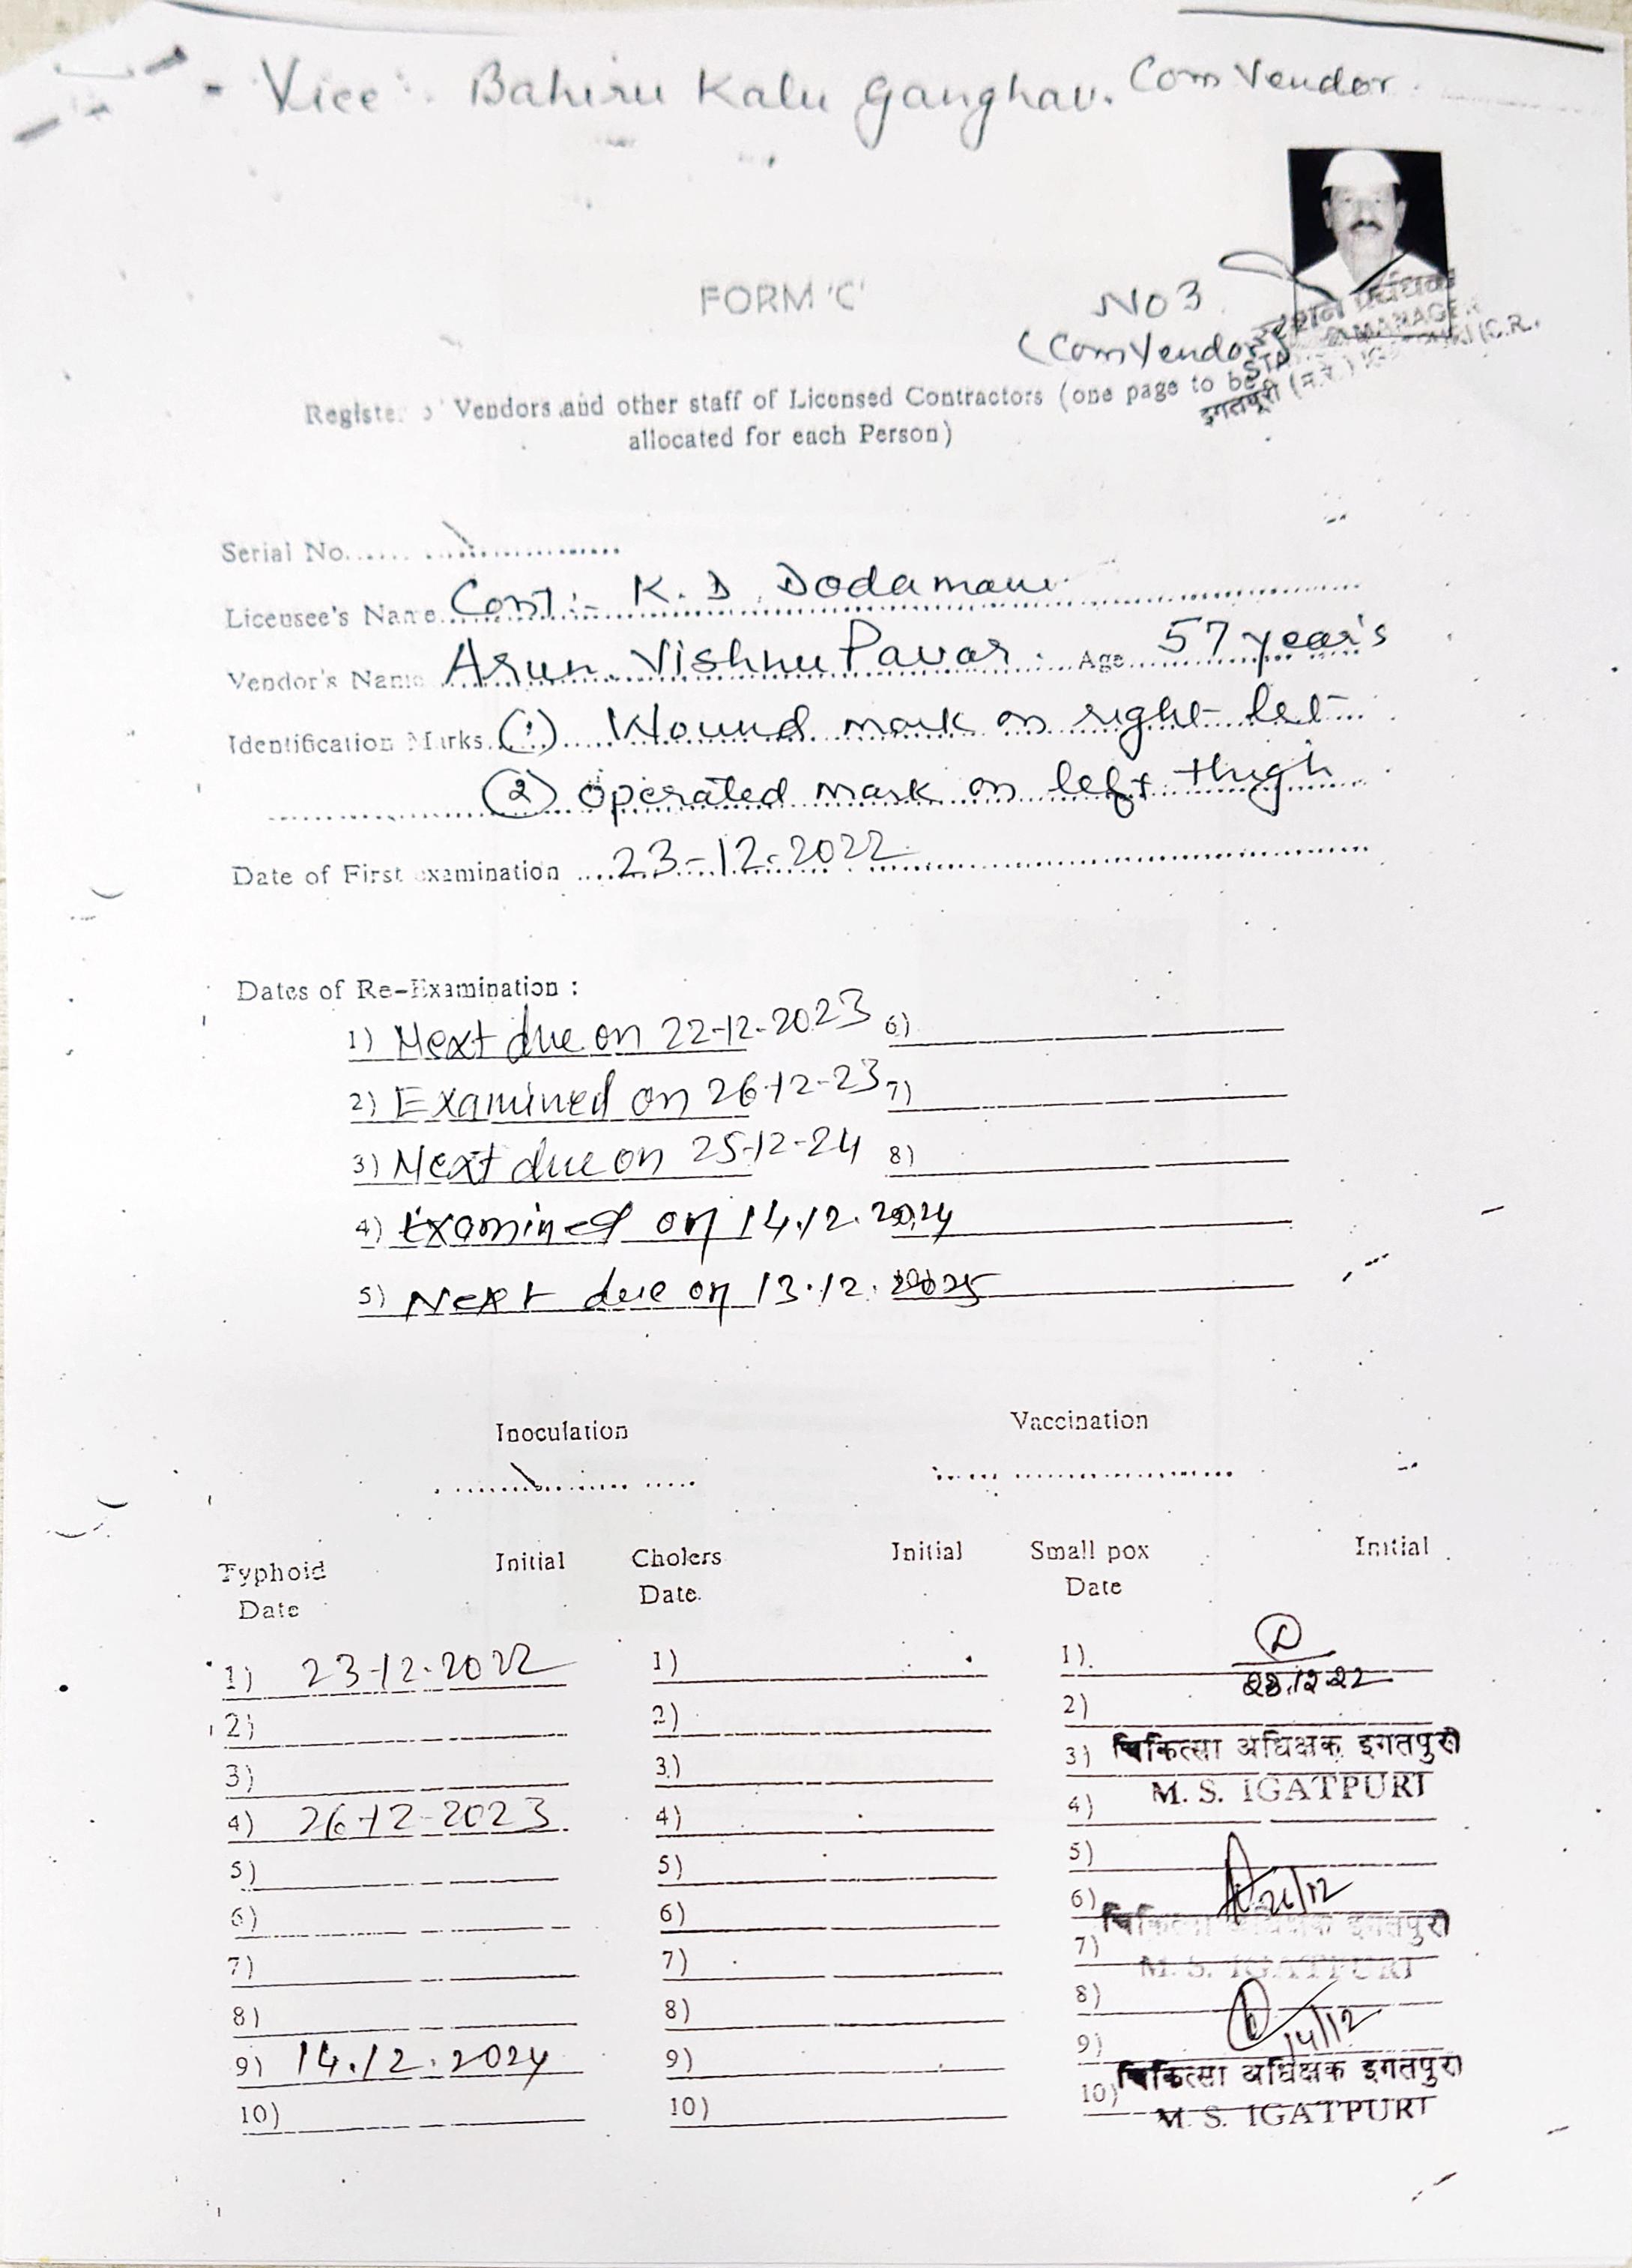 - Vice :- Bahiru Kalu Ganghav. Com Vendor.
FORM 'C'
No 3
(Com Vendor)
स्टेशन प्रबंधक
STATION MANAGER
इगतपुरी (म.रे.) (C.R.
Register of Vendors and other staff of Licensed Contractors (one page to be
allocated for each Person)
Serial No.
Licensee's Name Cont :- K. D. Dodamani
Vendor's Name Arun Vishnu Pavar. Age 57 year's
Identification Marks (1) Wound mark on right let
(2) Operated mark on left thigh
Date of First examination 23-12-2022
Dates of Re-Examination :
1) Next due on 22-12-2023 6)
2) Examined on 26-12-23 7)
3) Next due on 25-12-24 8)
4) Examined on 14.12.2024
5) Next due on 13.12.2025
Inoculation Vaccination
Typhoid Initial Cholers Initial Small pox Initial
Date Date. Date
1) 23-12-2022 1) 1)
23.12.22
2) 2) 2)
3) 3) 3) चिकित्सा अधिक्षक इगतपुरी
M. S. IGATPURI
4) 26-12-2023 4) 4)
5) 5) 5)
6) 6) 6) 26/12
चिकित्सा अधिक्षक इगतपुरी
7) 7) 7) M. S. IGATPURI
8) 8) 8)
9) 14.12.2024 9) 9) 14/12
10) 10) 10) चिकित्सा अधिक्षक इगतपुरी
M. S. IGATPURI